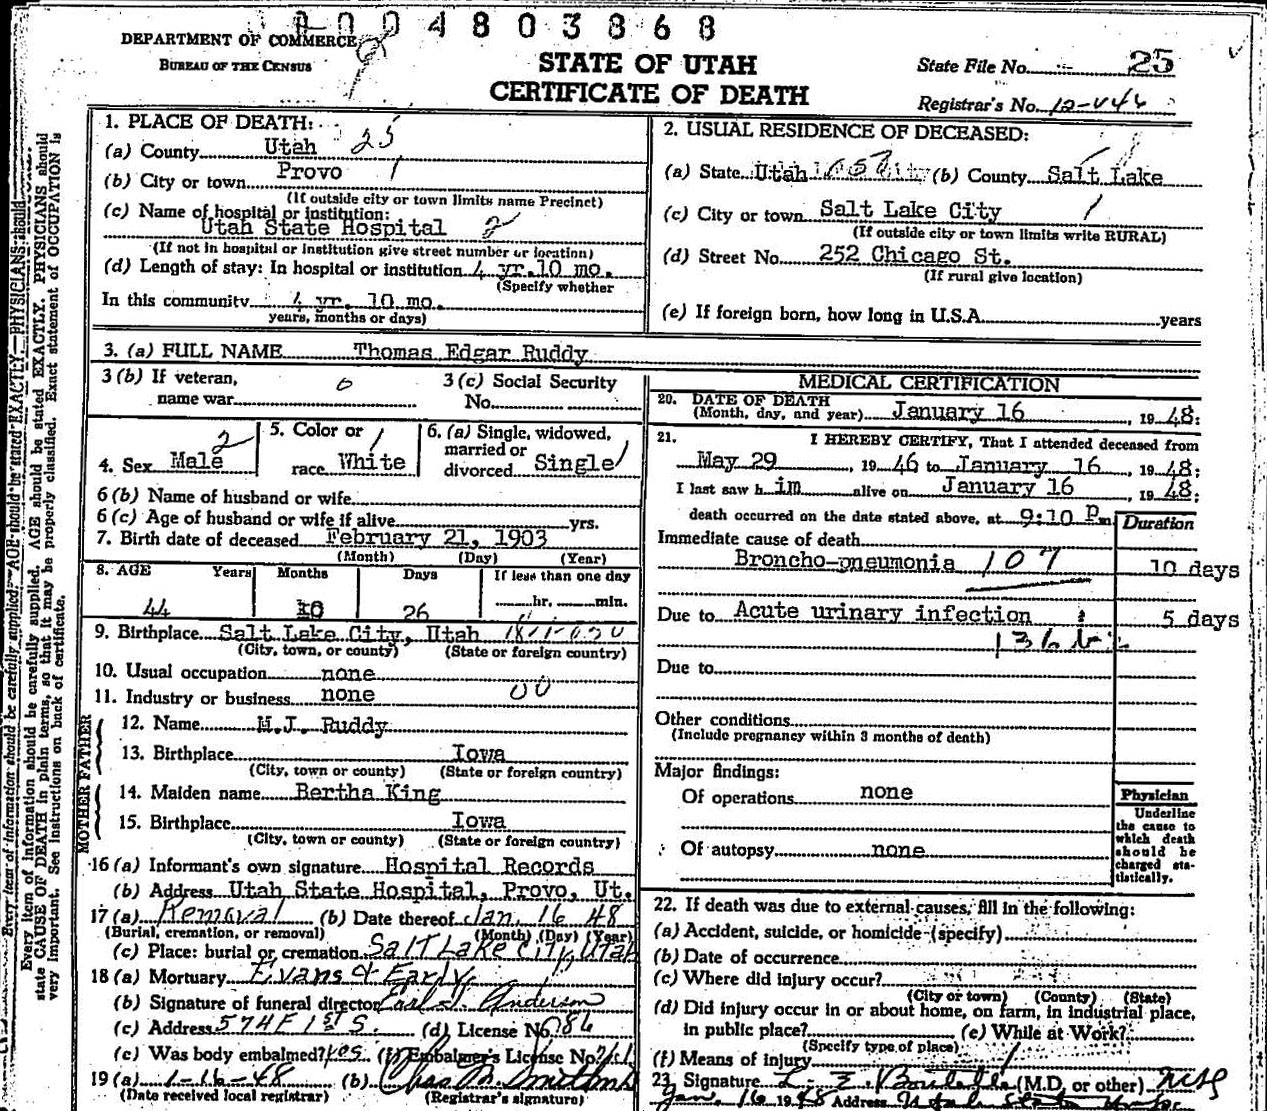 0004803868
DEPARTMENT OF COMMERCE
BUREAU OF THE CENSUS
STATE OF UTAH
CERTIFICATE OF DEATH
State File No. 25
Registrar's No. 12-V46
Every item of information should be carefully supplied. AGE should be stated EXACTLY. PHYSICIANS should
state CAUSE OF DEATH in plain terms, so that it may be properly classified. Exact statement of OCCUPATION is
very important. See instructions on back of certificate.
1. PLACE OF DEATH:
(a) County Utah 25
(b) City or town Provo 1
(If outside city or town limits name Precinct)
(c) Name of hospital or institution:
Utah State Hospital 2
(If not in hospital or institution give street number or location)
(d) Length of stay: In hospital or institution 4 yr. 10 mo.
(Specify whether
In this community 4 yr. 10 mo.
years, months or days)
2. USUAL RESIDENCE OF DECEASED:
(a) State Utah (b) County Salt Lake
(c) City or town Salt Lake City 1
(If outside city or town limits write RURAL)
(d) Street No. 252 Chicago St.
(If rural give location)
(e) If foreign born, how long in U.S.A. years
3. (a) FULL NAME Thomas Edgar Ruddy
3 (b) If veteran, name war 0
3 (c) Social Security No.
4. Sex Male 2
5. Color or race White 1
6. (a) Single, widowed, married or divorced Single 1
6 (b) Name of husband or wife
6 (c) Age of husband or wife if alive yrs.
7. Birth date of deceased February 21, 1903
(Month) (Day) (Year)
8. AGE Years Months Days If less than one day
44 10 26 hr. min.
9. Birthplace Salt Lake City, Utah
(City, town, or county) (State or foreign country)
10. Usual occupation none
11. Industry or business none 00
FATHER
12. Name M.J. Ruddy
13. Birthplace Iowa
(City, town or county) (State or foreign country)
MOTHER
14. Maiden name Bertha King
15. Birthplace Iowa
(City, town or county) (State or foreign country)
16 (a) Informant's own signature Hospital Records
(b) Address Utah State Hospital, Provo, Ut.
17 (a) Removal (b) Date thereof Jan. 16 48
(Burial, cremation, or removal) (Month) (Day) (Year)
(c) Place: burial or cremation Salt Lake City, Utah
18 (a) Mortuary Evans & Early
(b) Signature of funeral director Earl S. Anderson
(c) Address 574 E 1st S. (d) License No. 786
(e) Was body embalmed? Yes (f) Embalmer's License No.
19 (a) 1-16-48 (b) Chas M. Smith
(Date received local registrar) (Registrar's signature)
MEDICAL CERTIFICATION
20. DATE OF DEATH
(Month, day, and year) January 16, 1948:
21. I HEREBY CERTIFY, That I attended deceased from
May 29, 1946 to January 16, 1948;
I last saw him alive on January 16, 1948;
death occurred on the date stated above, at 9:10 P.m
Duration
Immediate cause of death
Broncho-pneumonia 107 10 days
Due to Acute urinary infection 5 days
136 b
Due to
Other conditions
(Include pregnancy within 3 months of death)
Major findings:
Of operations none
Of autopsy none
Physician
Underline
the cause to
which death
should be
charged sta-
tistically.
22. If death was due to external causes, fill in the following:
(a) Accident, suicide, or homicide (specify)
(b) Date of occurrence
(c) Where did injury occur?
(City or town) (County) (State)
(d) Did injury occur in or about home, on farm, in industrial place,
in public place? (e) While at Work?
(Specify type of place)
(f) Means of injury
23. Signature (M.D. or other)
Jan. 16 1948 Address Utah State